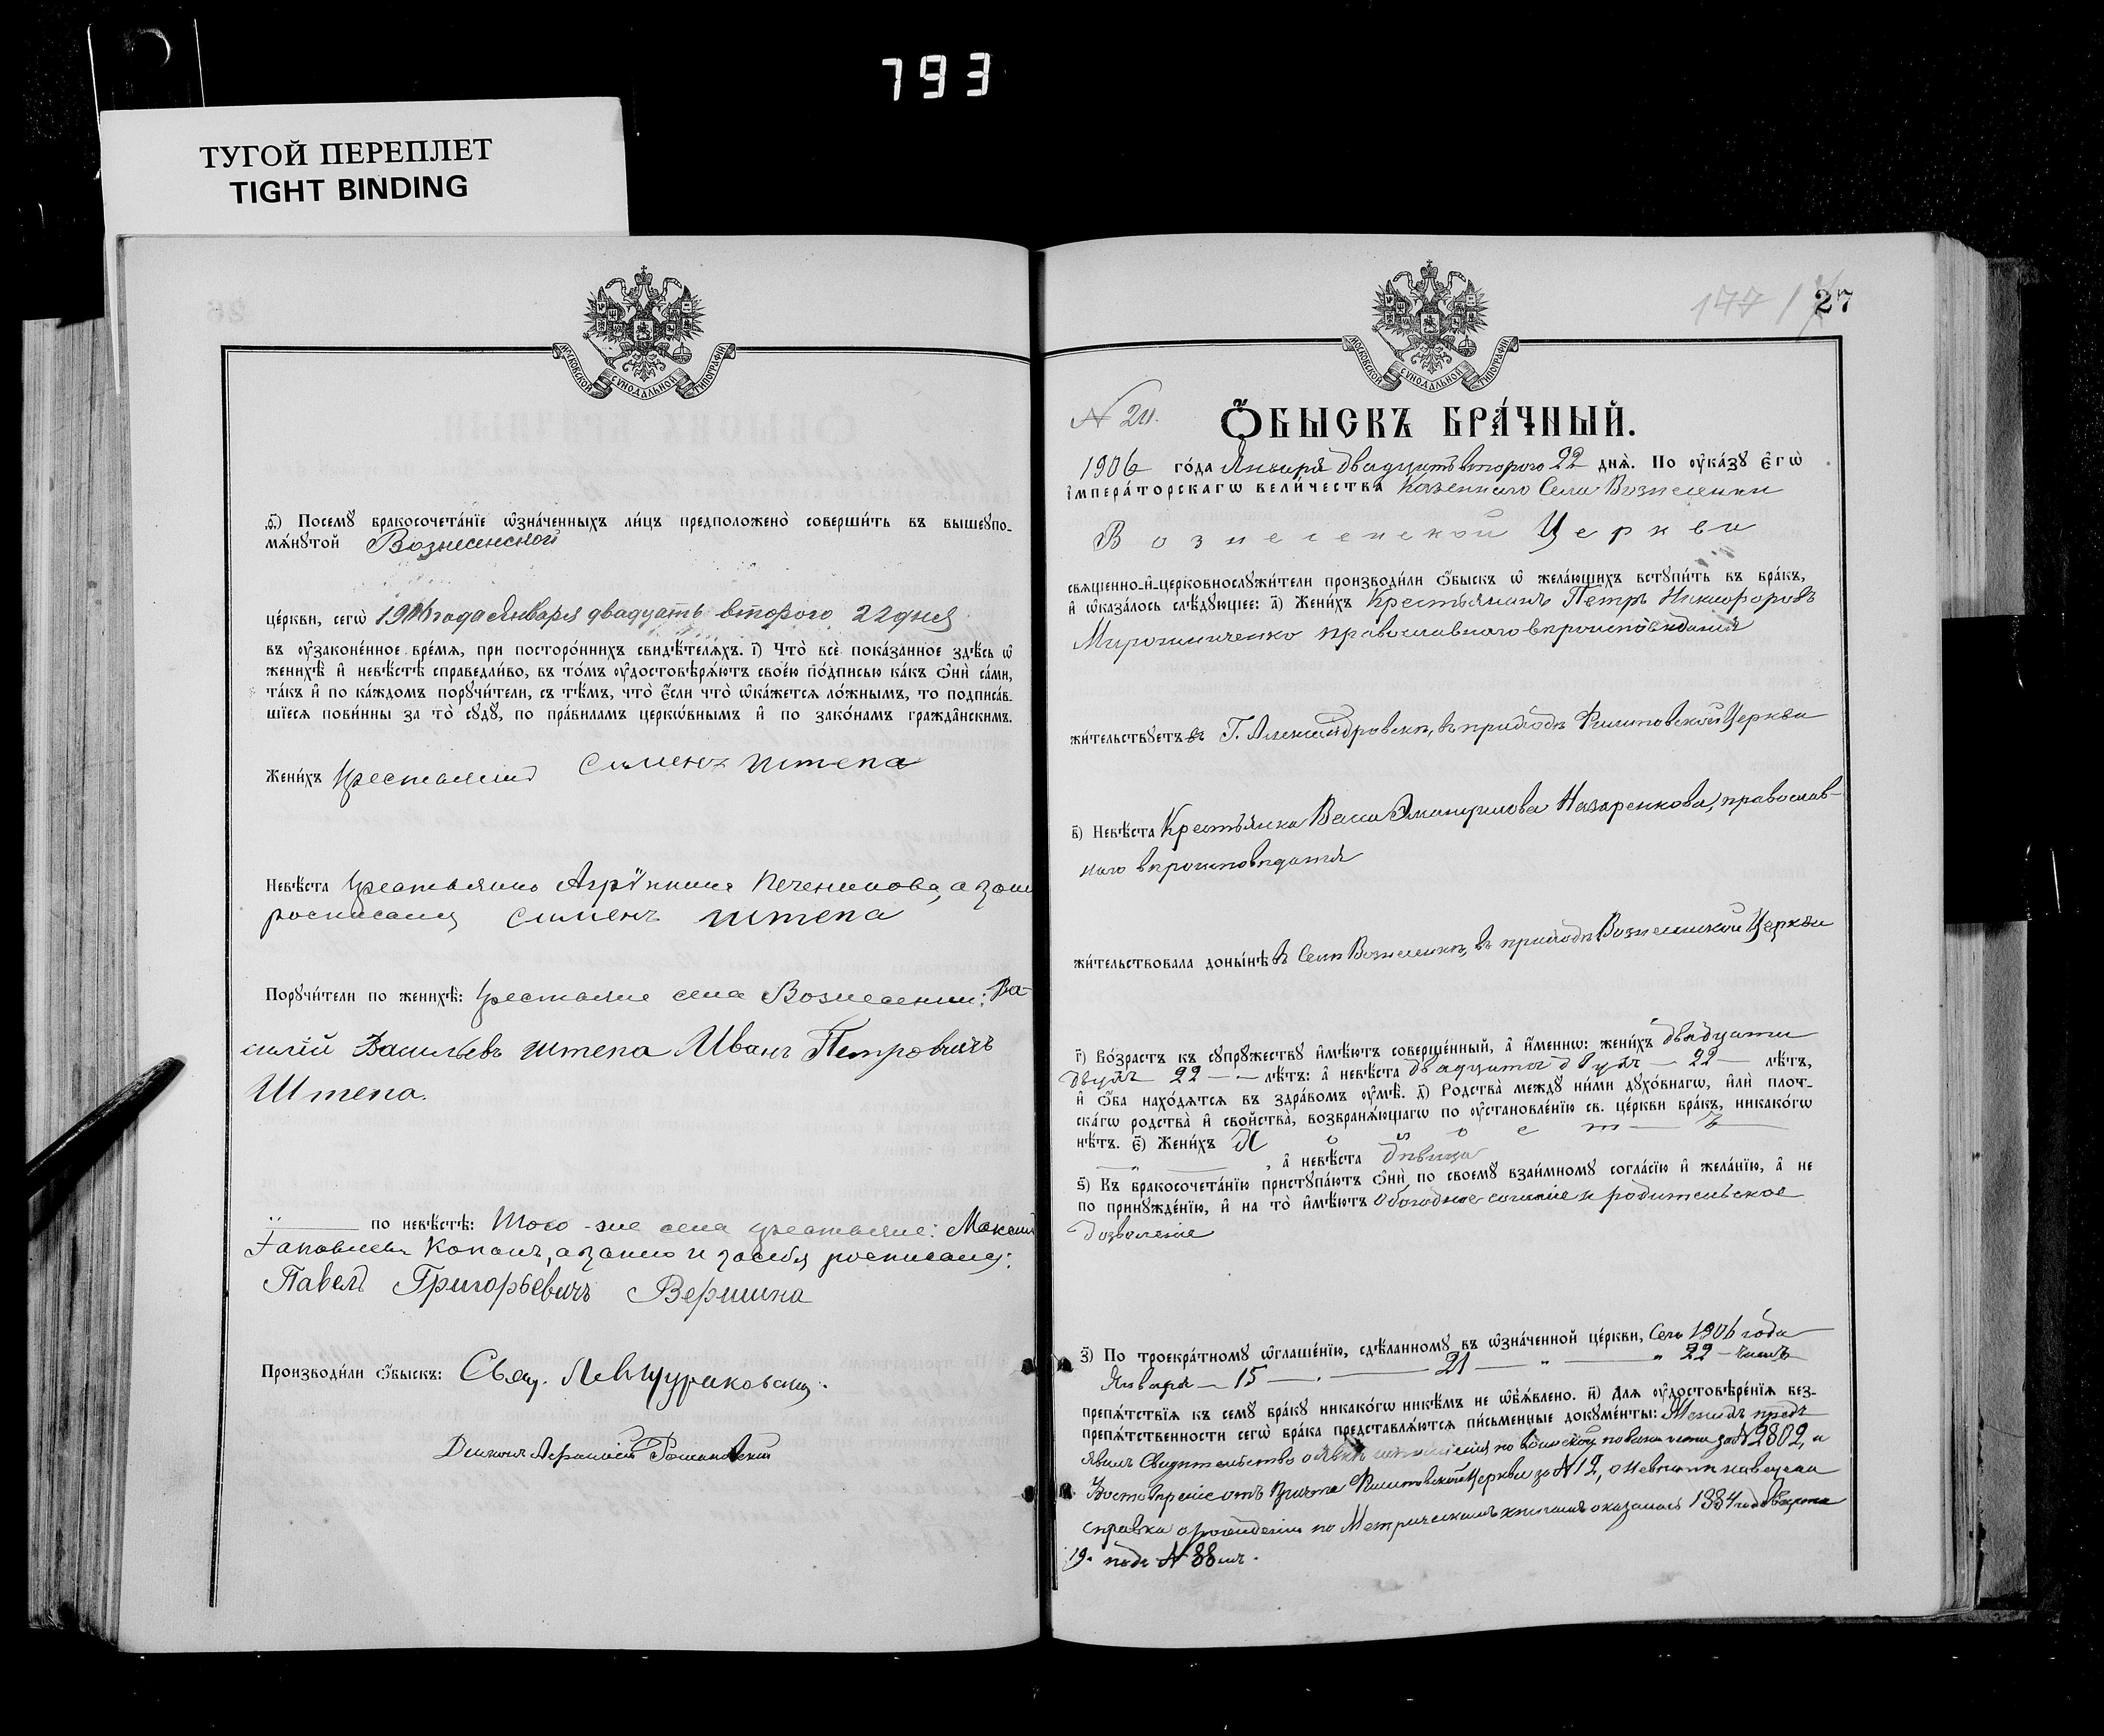 793
ТУГОЙ ПЕРЕПЛЕТ
TIGHT BINDING
МОСКОВСКОЙ СѴНОДАЛЬНОЙ ТИПОГРАФІИ
ѳ҃) Посемꙋ бракосочета́нїе ѡ҆зна́ченныхъ ли́цъ предположено̀ соверши́ть въ вышеꙋпо-
мѧ́нꙋтой Вознесенской
це́ркви, сегѡ̀ 1906 года Января двадцать второго 22 дня
въ ᲂу҆зако́ненное вре́мѧ, при посторо́ннихъ свидѣ́телѧхъ. і҃) Что̀ всѐ пока́занное здѣ́сь ѡ҆
женихѣ̀ и҆ невѣ́стѣ справедли́во, въ то́мъ ᲂу҆достовѣрѧ́ютъ свое́ю по́дписью ка́къ ѻ҆нѝ са́ми,
та́къ и҆ по ка́ждомъ порꙋчи́тели, съ тѣ́мъ, что̀ є҆́сли что̀ ѡ҆ка́жется ло́жнымъ, то подписа́в-
шїесѧ пови́нны за то̀ сꙋдꙋ̀, по пра́виламъ церко́внымъ и҆ по зако́намъ гражда́нскимъ.
Жени́хъ Крестьянин Сименъ Штепа
Невѣ́ста Крестьянка Агрипина Печеникова, а за нее
росписался Сименъ Штепа
Порꙋчи́тели по женихѣ̀: Крестьяне села Вознесенки: Ва-
силій Васильевъ Штепа Иванъ Петровичъ
Штепа.
по невѣ́стѣ: Того-же села крестьяне: Максим
Яковлевъ Копанъ, а занего и засебя росписался:
Павелъ Григорьевичъ Вершина
Производи́ли ѻ҆́быскъ: Свящ. Лев
Діаконъ Афанасій
МОСКОВСКОЙ СѴНОДАЛЬНОЙ ТИПОГРАФІИ
27
N 24.
Ѻ҆́БЫСКЪ БРА́ЧНЫЙ.
1906 го́да Января двадцать второго 22 днѧ̀. По ᲂу҆ка́зꙋ є҆гѡ̀
і҆мпера́торскагѡ вели́чества Казеннаго Села Вознесенки
Вознесенской Церкви
сваще́нно-и҆-церковнослꙋжи́тели производи́ли ѻ҆́быскъ ѡ҆ жела́ющихъ встꙋпи́ть въ бра́къ,
и҆ ѡ҆каза́лось слѣ́дꙋющее: а҃) Жени́хъ Крестьянинъ Петръ Никифоровъ
Мирошниченко православнаго вѣроисповѣданія
жи́тельствꙋетъ въ Г. Александровскѣ, въ приходѣ Филиповской Церкви
в҃) Невѣ́ста Крестьянка Васса Назаренкова, православ-
наго вѣроисповѣданія
жи́тельствовала доны́нѣ въ Селѣ Вознесенкѣ, въ приходѣ Вознесенской Церкви
г҃) Во́зрастъ къ сꙋпрꙋ́жествꙋ и҆мѣ́ютъ соверше́нный, а҆ и҆́менно: жени́хъ двадцати
двухъ 22 лѣ́тъ: а҆ невѣ́ста двадцати двухъ 22 лѣ́тъ,
и҆ ѻ҆́ба нахо́дѧтсѧ въ здра́вомъ ᲂу҆мѣ̀. д҃) Родства̀ междꙋ ни́ми дꙋхо́внагѡ, и҆лѝ пло́т-
ска́гѡ родства̀ и҆ сво́йства, возбранѧ́ющагѡ по ᲂу҆становле́нїю св. це́ркви бра́къ, никако́гѡ
нѣ́тъ. є҃) Жени́хъ Холостъ
, а҆ невѣ́ста дѣвица
ѕ҃) Къ бракосочета́нїю пристꙋпа́ютъ ѻ҆нѝ по своемꙋ̀ взаи́мномꙋ согла́сїю и҆ жела́нїю, а҆ не
по принꙋжде́нїю, и҆ на то̀ и҆мѣ́ютъ обоюдное согласіе и родительское
дозволеніе
з҃) По троекра́тномꙋ ѡ҆глаше́нїю, сдѣ́ланномꙋ въ ѡ҆зна́ченной це́ркви, сего 1906 года
Января 15 21 " " 22 числъ
препѧ́тствїѧ къ семꙋ̀ бра́кꙋ никако́гѡ никѣ́мъ не ѡ҆б̾ѧ́влено. и҃) Для ᲂу҆достовѣре́нїѧ без-
препѧ́тственности сегѡ̀ бра́ка представлѧ́ютсѧ пи́сьменные докꙋме́нты: Женихъ предъ-
явилъ Свидѣтельство о явкѣ къ исполненію по воинской повинности за N 2802, и
отъ Причта Филиповской Церкви за N 12, о невѣстѣ наведена
справка о рожденіи по Метрическимъ книгамъ оказалась 1884 года
19. подъ N 88мъ.